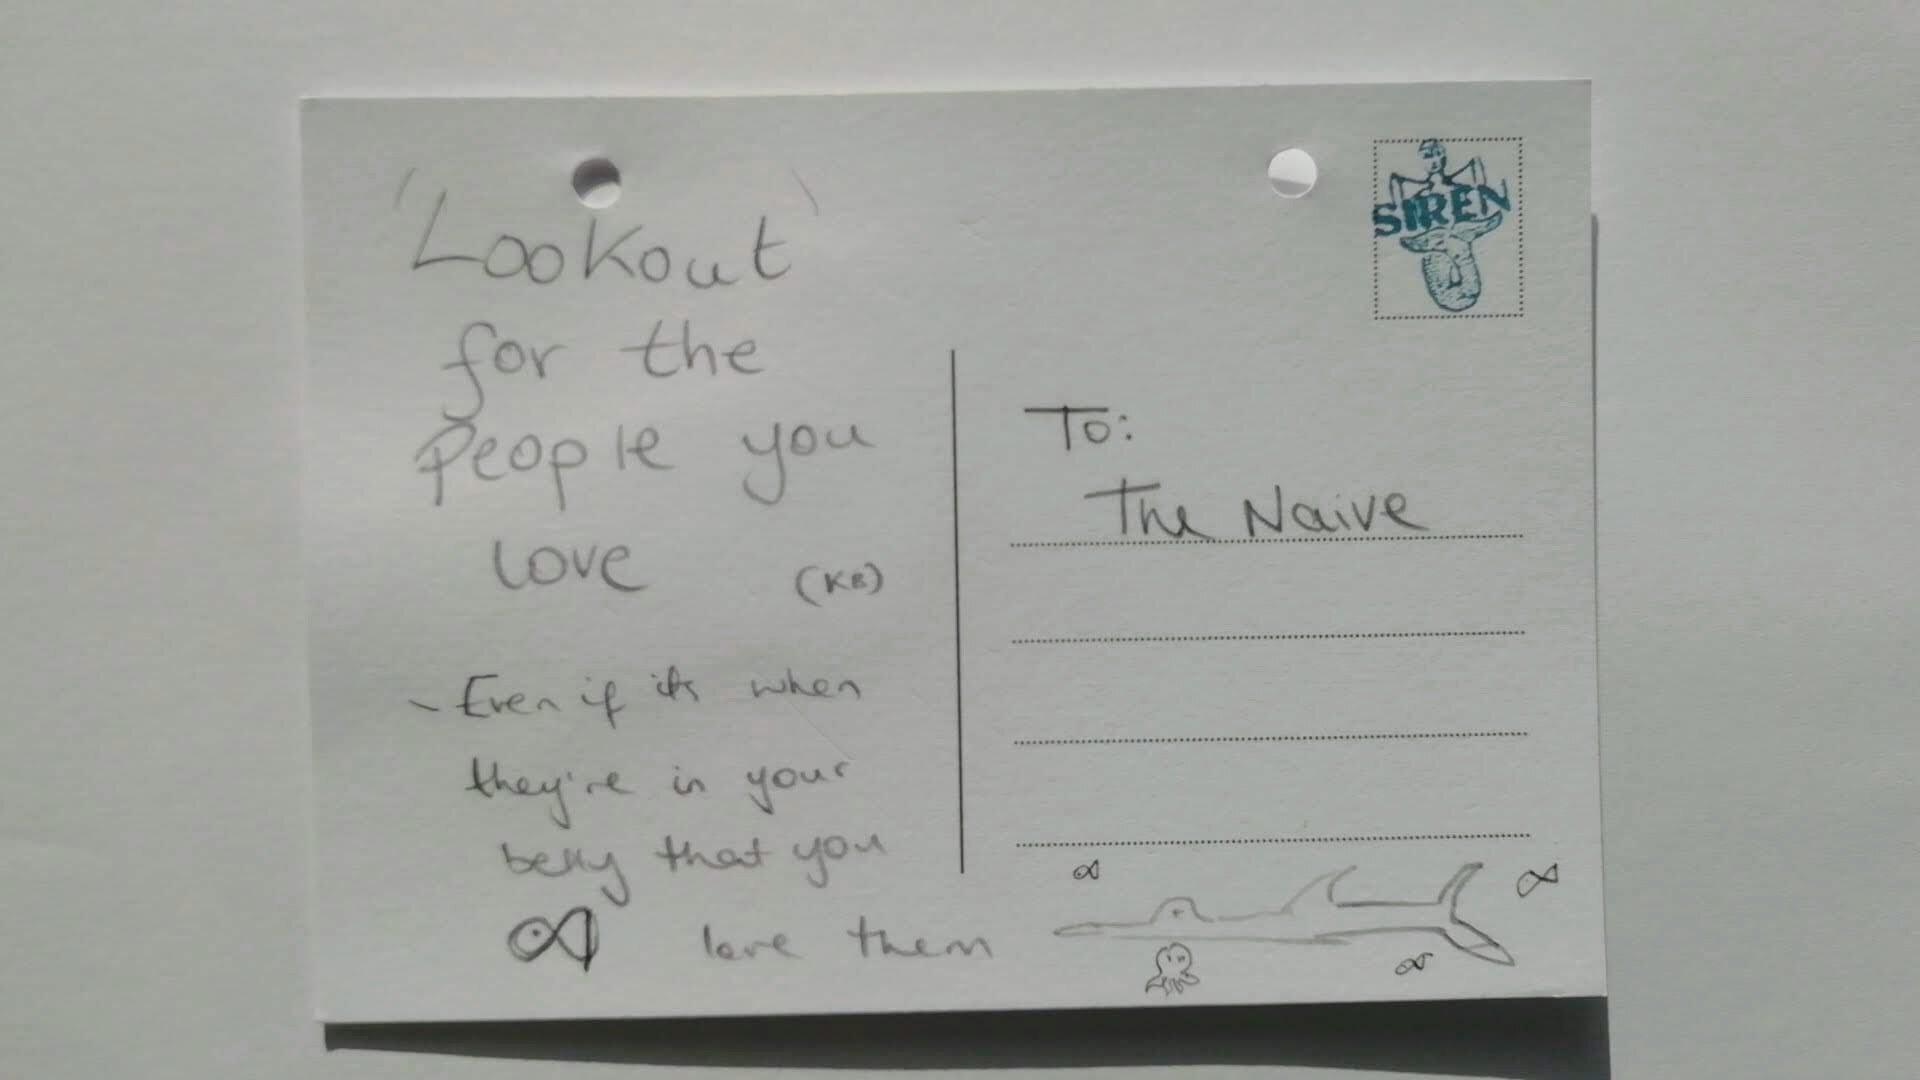 'Lookout'
for the
People you
love (KB)
- Even if its when
they're in your
belly that you
love them
SIREN
To:
The Naive